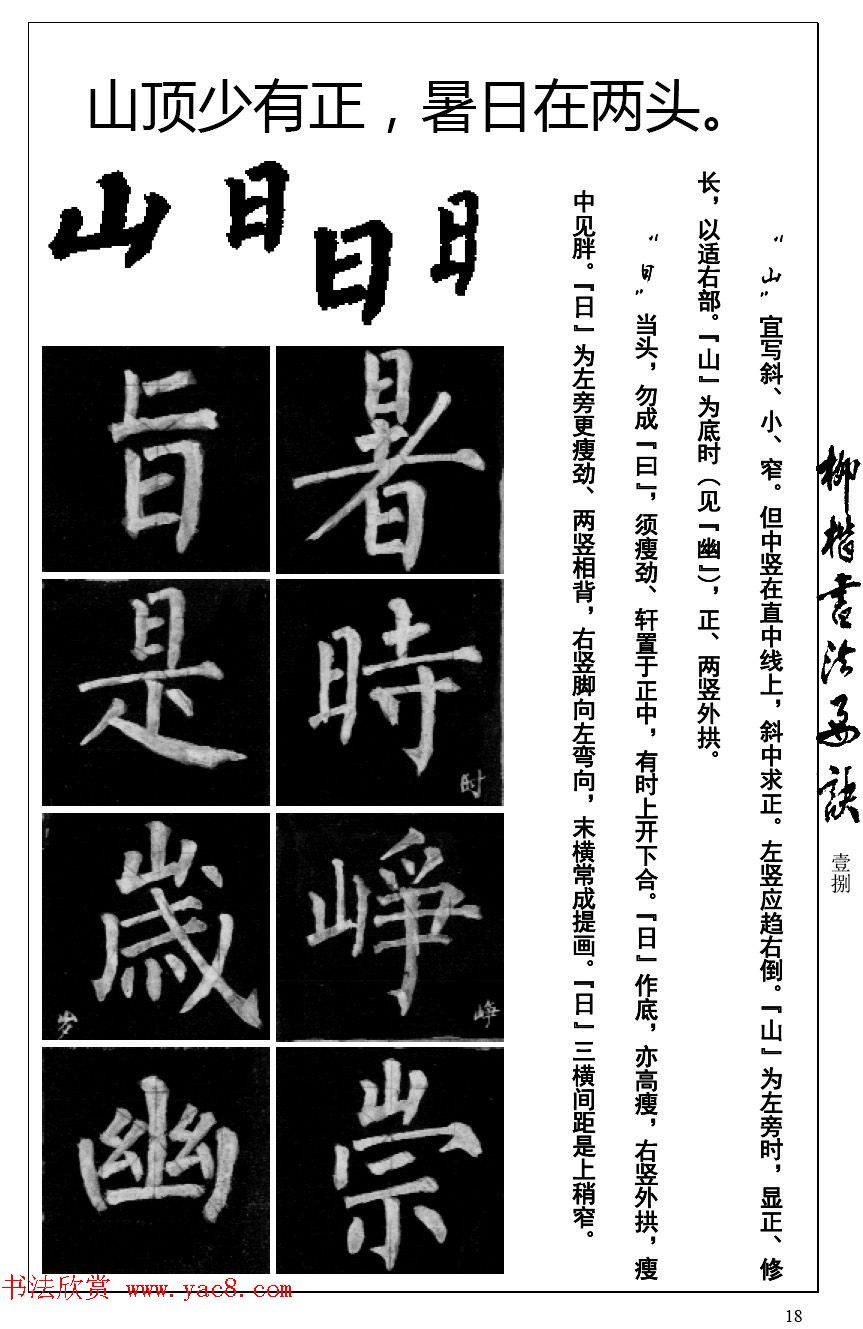 山顶少有正，暑日在两头。
山 日 日 日
暑 旨
時 是
时
崢 歲
峥 岁
崇 幽
“山”宜写斜、小、窄。但中竖在直中线上，斜中求正。左竖应趋右倒。『山』为左旁时，显正、修
长，以适右部。『山』为底时（见『幽』），正、两竖外拱。
“日”当头，勿成『曰』，须瘦劲、轩置于正中，有时上开下合。『日』作底，亦高瘦，右竖外拱，瘦
中见胖。『日』为左旁更瘦劲、两竖相背，右竖脚向左弯向，末横常成提画。『日』三横间距是上稍窄。
柳楷书法要诀
壹捌
书法欣赏 www.yac8.com
18